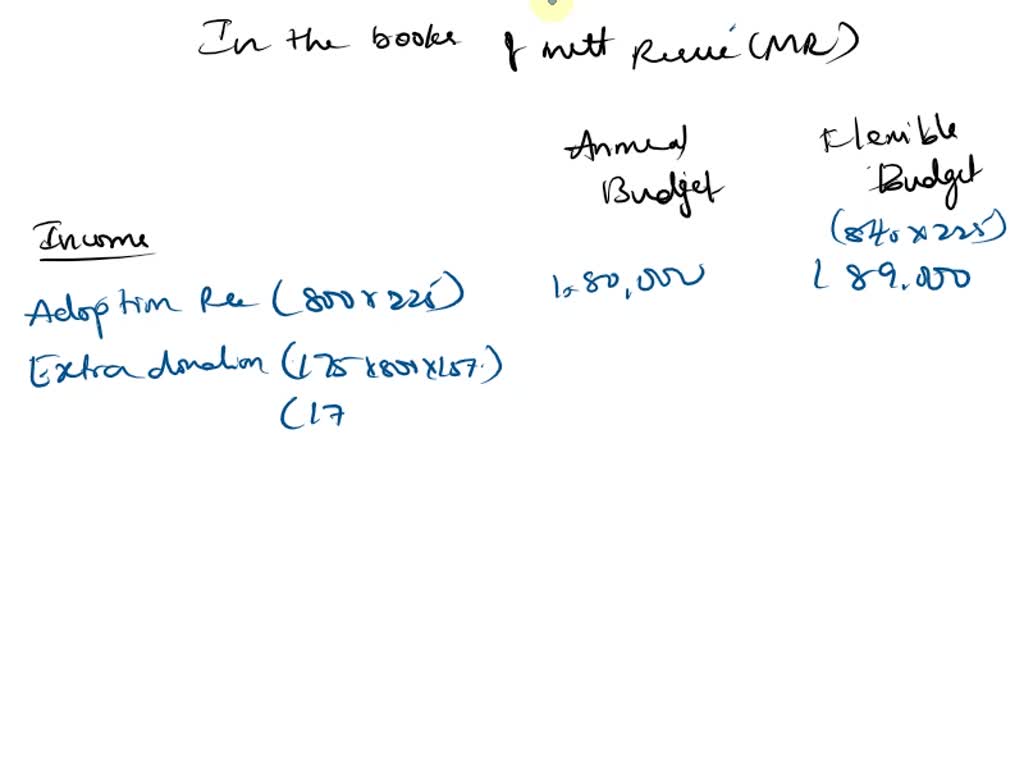 In the books of mutt Rescue (MR)
Annual Flexible
Budget Budget
Income (840 × 225)
Adoption Fee (800 × 225) 1,80,000 189,000
Extra donation (175 × 800 × 15%)
(17